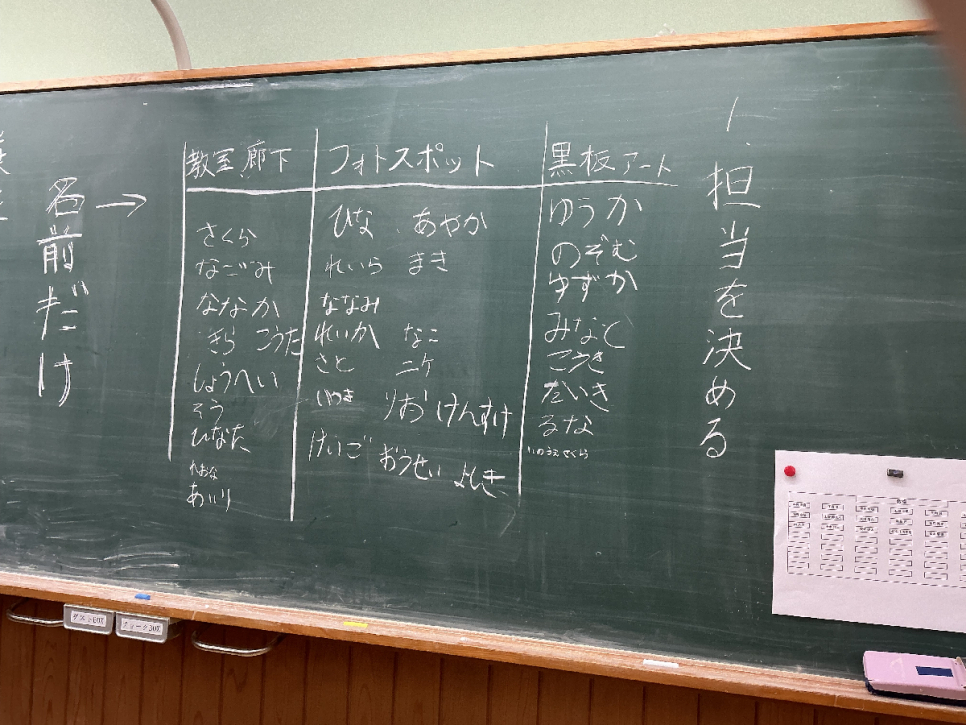 1. 担当を決める
黒板アート
ゆうか
のぞむ
ゆずか
みなと
こうき
だいき
るな
いのうえさくら
フォトスポット
ひな、あやか
れいら まき
ななみ
れいか なこ
さと ニケ
いつき りお けんすけ
けいご おうせい よしき
教室、廊下
さくら
なごみ
ななか
きら こうた
しょうへい
そう
ひなた
れおな
あいり
名前だけ→